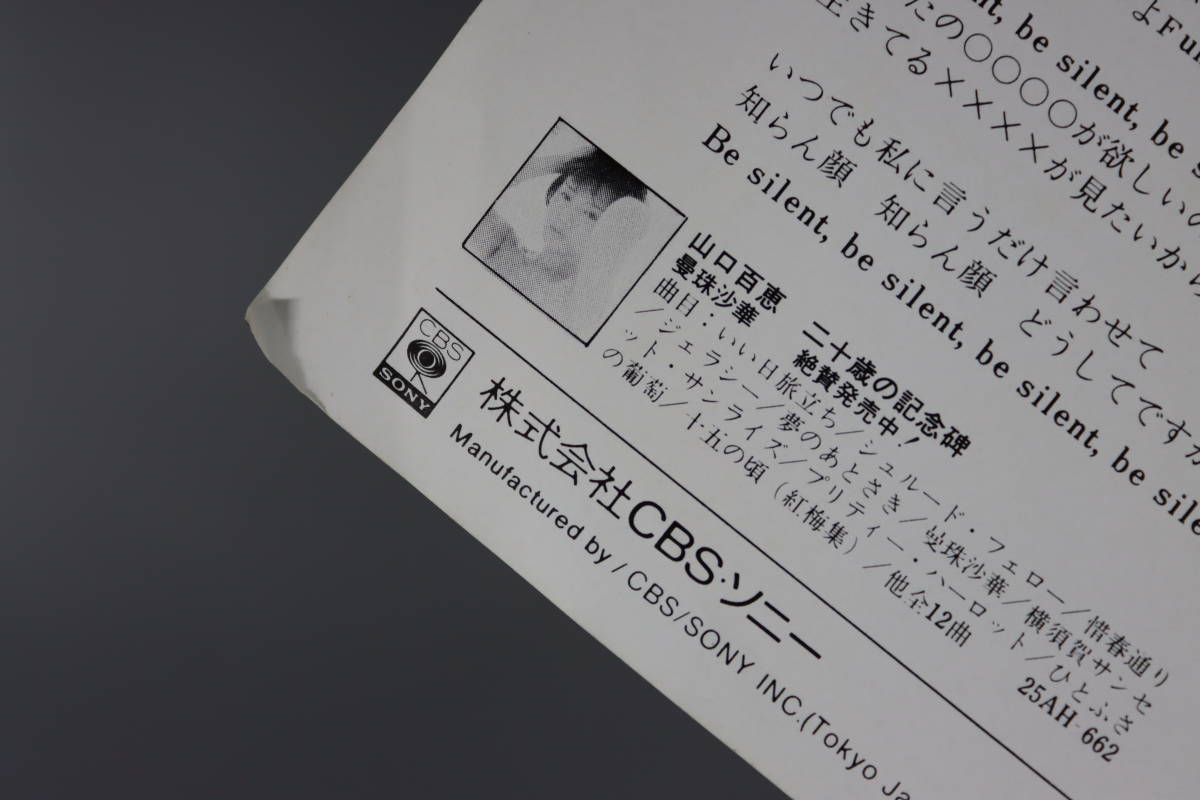 よFun
nt, be silent, be s
たの○○○○が欲しいの
生きてる××××が見たいから
いつでも私に言うだけ言わせて
知らん顔 知らん顔 どうしてですか
Be silent, be silent, be silent, be sile
山口百恵 二十歳の記念碑
曼珠沙華 絶賛発売中!
曲目:いい日旅立ち/シュルード・フェロー/惜春通り
/ジェラシー/夢のあとさき/曼珠沙華/横須賀サンセ
ット・サンライズ/プリティー・ハーロット/ひとふさ
の葡萄/十五の頃(紅梅集)/他全12曲 25AH-662
CBS
SONY
株式会社CBS・ソニー
Manufactured by/CBS/SONY INC.(Tokyo Ja